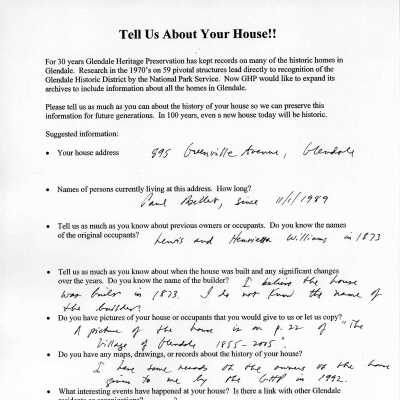 Tell Us About Your House!!
For 30 years Glendale Heritage Preservation has kept records on many of the historic homes in
Glendale. Research in the 1970's on 59 pivotal structures lead directly to recognition of the
Glendale Historic District by the National Park Service. Now GHP would like to expand its
archives to include information about all the homes in Glendale.
Please tell us as much as you can about the history of your house so we can preserve this
information for future generations. In 100 years, even a new house today will be historic.
Suggested information:
• Your house address 895 Greenville Avenue, Glendale
• Names of persons currently living at this address. How long?
Paul , since 11/1/1989
• Tell us as much as you know about previous owners or occupants. Do you know the names
of the original occupants? Lewis and Henrietta Williams in 1873
• Tell us as much as you know about when the house was built and any significant changes
over the years. Do you know the name of the builder? I believe the house
was built in 1873. I do not know the name of
the builder.
• Do you have pictures of your house or occupants that you would give to us or let us copy?
A picture of the house is on p. 22 of "The
Village of Glendale 1855-2005".
• Do you have any maps, drawings, or records about the history of your house?
I have some records of the owners of the home
given to me by the GHP in 1992.
• What interesting events have happened at your house? Is there a link with other Glendale